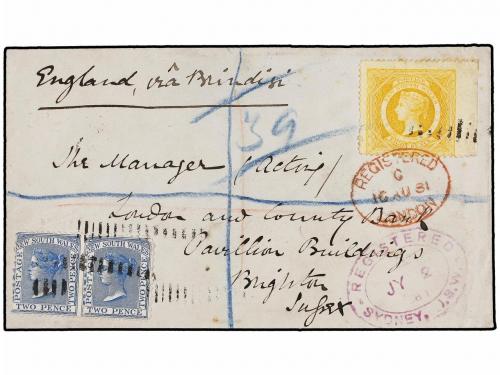 England, via Brindisi
39
The Manager (Acting)
London and County Bank
Pavilion Buildings
Brighton
Sussex
REGISTERED
C
16 AU 81
LONDON
REGISTERED
SYDNEY, N.S.W.
NEW SOUTH WALES
POSTAGE
TWO PENCE
NEW SOUTH WALES
POSTAGE
TWO PENCE